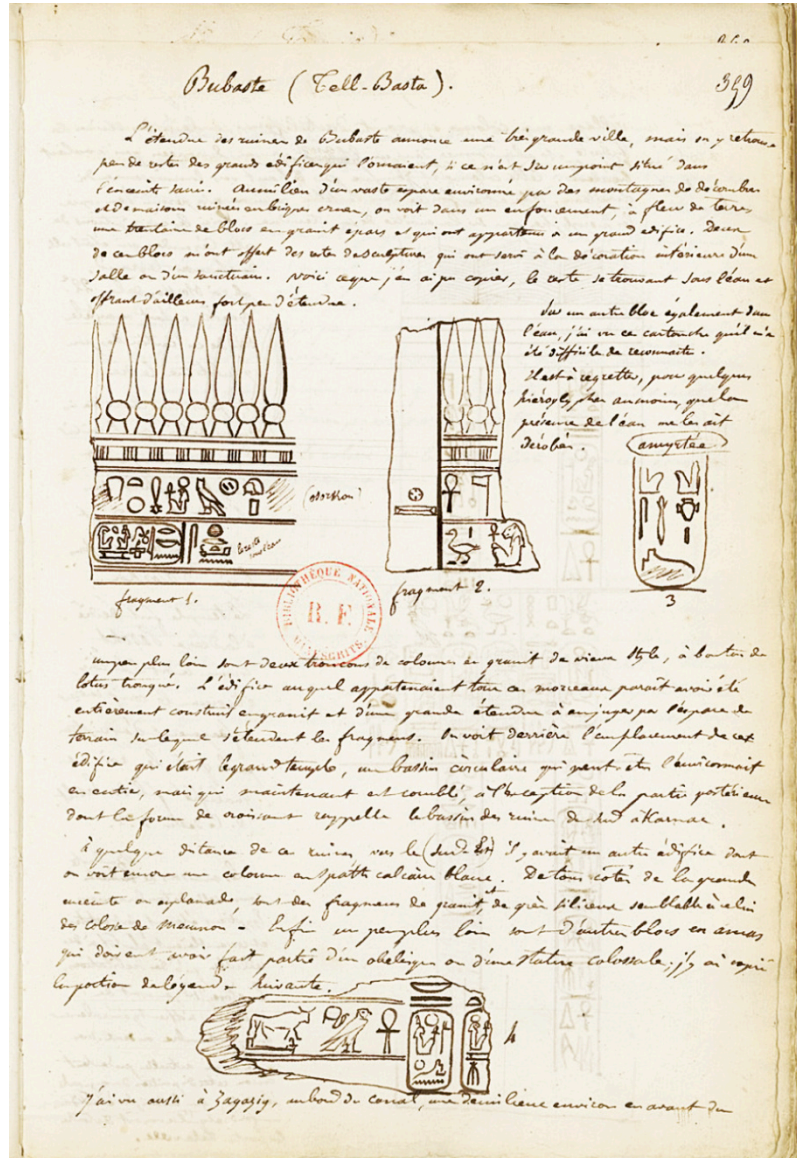 359
Bubaste (Tell-Basta).
L'étendue des ruines de Bubaste annonce une très grande ville, mais on y retrouve
peu de restes des grands édifices qui l'ornaient, si ce n'est sur un point situé dans
l'enceinte. Au milieu d'un vaste espace environné par des montagnes de décombres
et de maisons ruinées en briques crues, on voit dans un enfoncement, à fleur de terre,
une trentaine de blocs en granit épars et qui ont appartenu à un grand édifice. Deux
de ces blocs m'ont offert des restes de sculptures qui ont servi à la décoration intérieure d'une
salle ou d'un sanctuaire. Voici ce que j'en ai pu copier, le reste se trouvant sous l'eau et
offrant d'ailleurs fort peu d'étendue.
Sur un autre bloc également dans
l'eau, j'ai vu ce cartouche qu'il m'a
été difficile de reconnaître.
Il est à regretter, pour quelques
hiéroglyphes au moins, que la
présence de l'eau me les ait
dérobés.
amyrtée
(osorkon)
fragment 1.
fragment 2.
3
BIBLIOTHÈQUE NATIONALE
R.F.
MANUSCRITS
un peu plus loin sont deux tronçons de colonnes en granit de vieux style, à bouton de
lotus tronqué. L'édifice auquel appartenaient tous ces morceaux parait avoir été
entièrement construit en granit et d'une grande étendue à en juger par l'espace de
terrain sur lequel s'étendent les fragmens. On voit derrière l'emplacement de cet
édifice qui était le grand temple, un bassin circulaire qui peut-être l'environnait
en entier, mais qui maintenant est comblé, à l'exception de la partie postérieure
dont la forme de croissant rappelle le bassin des ruines du sud à Karnac.
à quelque distance de ces ruines, vers le (sud-Est) il y avait un autre édifice dont
on voit encore une colonne en spath calcaire blanc. De tous côtés de la grande
enceinte ou esplanade, sont des fragmens de granit, et de grès siliceux semblable à celui
des colosses de Memnon - Enfin un peu plus loin sont d'autres blocs en amas
qui doivent avoir fait partie d'un obélisque ou d'une statue colossale; j'y ai copié
la portion de légende suivante.
4
J'ai vu aussi à Zagazig, au bord du canal, une demi lieue environ en avant du